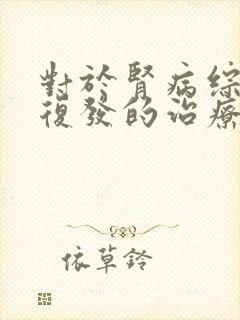 對於腎病綜
復發的治療
依草鈴